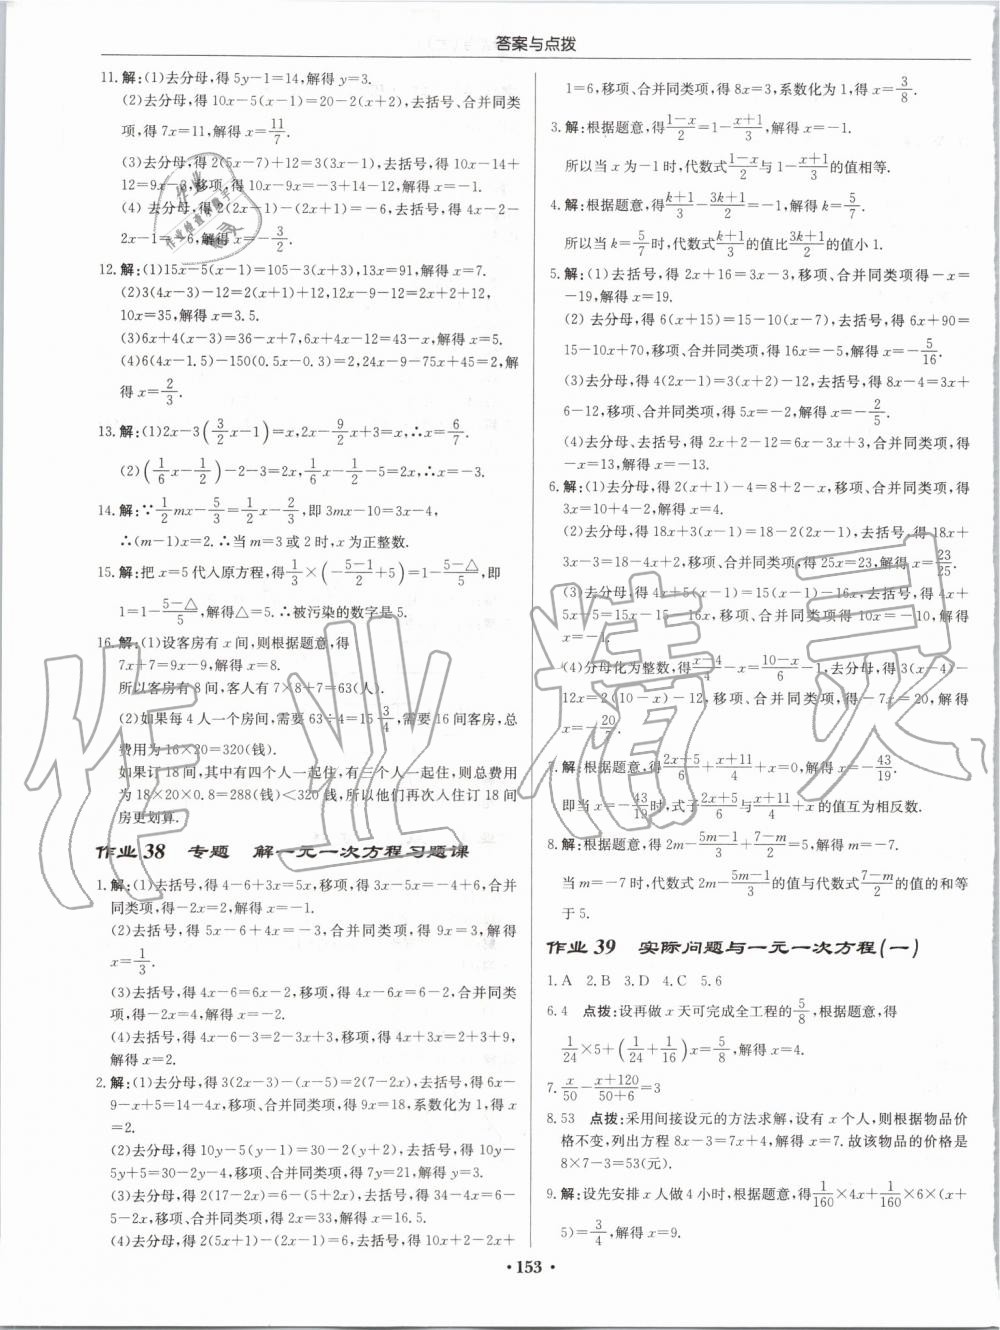 答案与点拨
11.解:(1)去分母,得 5y-1=14,解得 y=3.
(2)去分母,得 10x-5(x-1)=20-2(x+2),去括号、合并同类
项,得 7x=11,解得 x=11/7.
(3)去分母,得 2(5x-7)+12=3(3x-1),去括号,得 10x-14+
12=9x-3,移项,得 10x-9x=-3+14-12,解得 x=-1.
(4) 去分母,得 2(2x-1)-(2x+1)=-6,去括号,得 4x-2-
2x-1=-6,解得 x=-3/2.
12.解:(1)15x-5(x-1)=105-3(x+3),13x=91,解得 x=7.
(2)3(4x-3)-12=2(x+12)+12,12x-9-12=2x+2+12,
10x=35,解得 x=3.5.
(3)6x+4(x-3)=36-x+7,6x+4x-12=43-x,解得 x=5.
(4)6(4x-1.5)-150(0.5x-0.3)=2,24x-9-75x+45=2,解
得 x=2/3.
13.解:(1)2x-3(3/2x-1)=x,2x-9/2x+3=x,∴x=6/7.
(2)(1/6x-1/2)-2-3=2x,1/6x-1/2-5=2x,∴x=-3.
14.解:∵1/2mx-5/3=1/2x-2/3,即 3mx-10=3x-4,
∴(m-1)x=2.∴当 m=3 或 2 时,x 为正整数.
15.解:把 x=5 代入原方程,得1/3×(-5-1/2+5)=1-5-△/5,即
1=1-5-△/5,解得△=5.∴被污染的数字是 5.
16.解:(1)设客房有 x 间,则根据题意,得
7x+7=9x-9,解得 x=8.
所以客房有 8 间,客人有 7×8+7=63(人).
(2)如果每 4 人一个房间,需要 63÷4=15 3/4,需要 16 间客房,总
费用为 16×20=320(钱).
如果订 18 间,其中有四个人一起住,有三个人一起住,则总费用
为 18×20×0.8=288(钱)<320 钱,所以他们再次入住订 18 间
房更划算.
作业 38 专题 解一元一次方程习题课
1.解:(1)去括号,得 4-6+3x=5x,移项,得 3x-5x=-4+6,合并
同类项,得-2x=2,解得 x=-1.
(2)去括号,得 5x-6+4x=-3,移项、合并同类项,得 9x=3,解得
x=1/3.
(3)去括号,得 4x-6=6x-2,移项,得 4x-6x=6-2,合并同类
项,得-2x=4,解得 x=-2.
(4)去括号,得 4x-6-3=2-3x+3,移项,得 4x+3x=2+3+9,
解得 x=2.
2.解:(1)去分母,得 3(2x-3)-(x-5)=2(7-2x),去括号,得 6x-
9-x+5=14-4x,移项、合并同类项,得 9x=18,系数化为 1,得 x
=2.
(2)去分母,得 10y-5(y-1)=30-2(y+2),去括号,得 10y-
5y+5=30-2y-4,移项、合并同类项,得 7y=21,解得 y=3.
(3)去分母,得 2(17-2x)=6-(5+2x),去括号,得 34-4x=6-
5-2x,移项、合并同类项,得 2x=33,解得 x=16.5.
(4)去分母,得 2(5x+1)-(2x-1)=6,去括号,得 10x+2-2x+
1=6,移项、合并同类项,得 8x=3,系数化为 1,得 x=3/8.
3.解:根据题意,得1-x/2=1-x+1/3,解得 x=-1.
所以当 x 为-1 时,代数式1-x/2与 1-x+1/3的值相等.
4.解:根据题意,得k+1/3-3k+1/2=-1,解得 k=5/7.
所以当 k=5/7时,代数式k+1/3的值比3k+1/2的值小 1.
5.解:(1)去括号,得 2x+16=3x-3,移项、合并同类项得-x=
-19,解得 x=19.
(2) 去分母,得 6(x+15)=15-10(x-7),去括号,得 6x+90=
15-10x+70,移项、合并同类项,得 16x=-5,解得 x=-5/16.
(3)去分母,得 4(2x-1)=3(x+2)-12,去括号,得 8x-4=3x+
6-12,移项、合并同类项,得 5x=-2,解得 x=-2/5.
(4)去分母、去括号,得 2x+2-12=6x-3x+3,合并同类项,得
-x=13,解得 x=-13.
6.解:(1)去分母,得 2(x+1)-4=8+2-x,移项、合并同类项,得
3x=10+4-2,解得 x=4.
(2)去分母,得 18x+3(x-1)=18-2(2x-1),去括号,得 18x+
3x-3=18-4x+2,移项、合并同类项,得 25x=23,解得 x=23/25.
(3)去分母,得 4x+5(x-1)=15(x-1)-16x,去括号,得 4x+
5x+5=15x-15-16x,移项、合并同类项,得 10x=-10,解得
x=-1.
(4)分母化为整数,得x-4/4-x=10-x/6-1,去分母,得 3(x-4)-
12x=2(10-x)-12,移项、合并同类项,得-7x=20,解得
x=-20/7.
7.解:根据题意,得2x+5/6+x+11/4+x=0,解得 x=-43/19.
即当 x=-43/19时,式子2x+5/6与x+11/4+x 的值互为相反数.
8.解:根据题意,得 2m-5m-1/3+7-m/2=5,解得 m=-7.
当 m=-7 时,代数式 2m-5m-1/3的值与代数式7-m/2的值的和等
于 5.
作业 39 实际问题与一元一次方程(一)
1.A 2.B 3.D 4.C 5.6
6.4 点拨:设再做 x 天可完成全工程的5/8,根据题意,得
1/24×5+(1/24+1/16)x=5/8,解得 x=4.
7.x/50-x+120/50+6=3
8.53 点拨:采用间接设元的方法求解,设有 x 个人,则根据物品价
格不变,列出方程 8x-3=7x+4,解得 x=7.故该物品的价格是
8×7-3=53(元).
9.解:设先安排 x 人做 4 小时,根据题意,得1/160×4x+1/160×6×(x+
5)=3/4,解得 x=9.
·153·
作业精灵